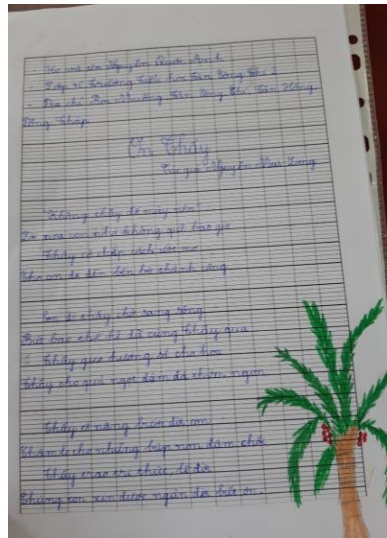 - Họ và tên Nguyễn Quốc Anh
- Lớp Trường Tiểu học Tân Công Chí 2
- Địa chỉ Tân Công Chí, Tân Hồng,
Đồng Tháp
Ơn Thầy
Tác giả Nguyễn Văn Long
"Không thầy đố mày nên"
Lời xưa con nhớ không quên bao giờ
Thầy cô chắp cách ước mơ
Cho con đi đến bến bờ thành công
Con đò thầy chở sang sông
Biết bao thế hệ đã cùng thầy qua
Thầy gieo hương sẽ cho hoa
Thầy cho quả ngọt đậm đà thơm ngon
Thầy cô nâng bước đời con
Thầm lo cho những búp non đâm chồi
Thầy trao tri thức, lẽ đời
Chúng con xin được ngàn đời biết ơn.